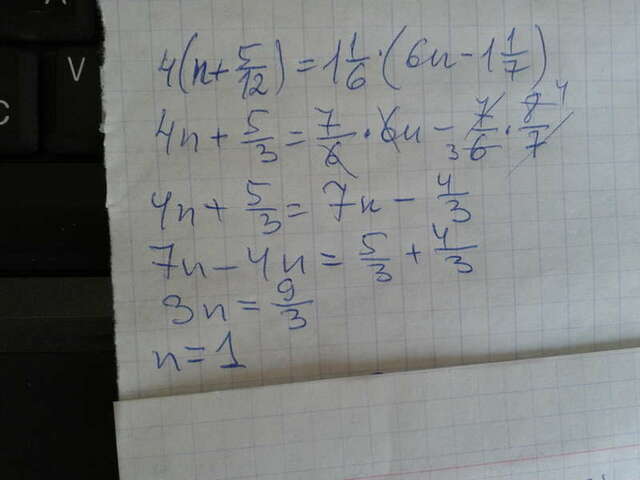 A
V
C
4(n+5/12)=1 1/6·(6n-1 1/7)
4n+5/3=7/6·6n-7/6·8/7 3 4
4n+5/3=7n-4/3
7n-4n=5/3+4/3
3n=9/3
n=1